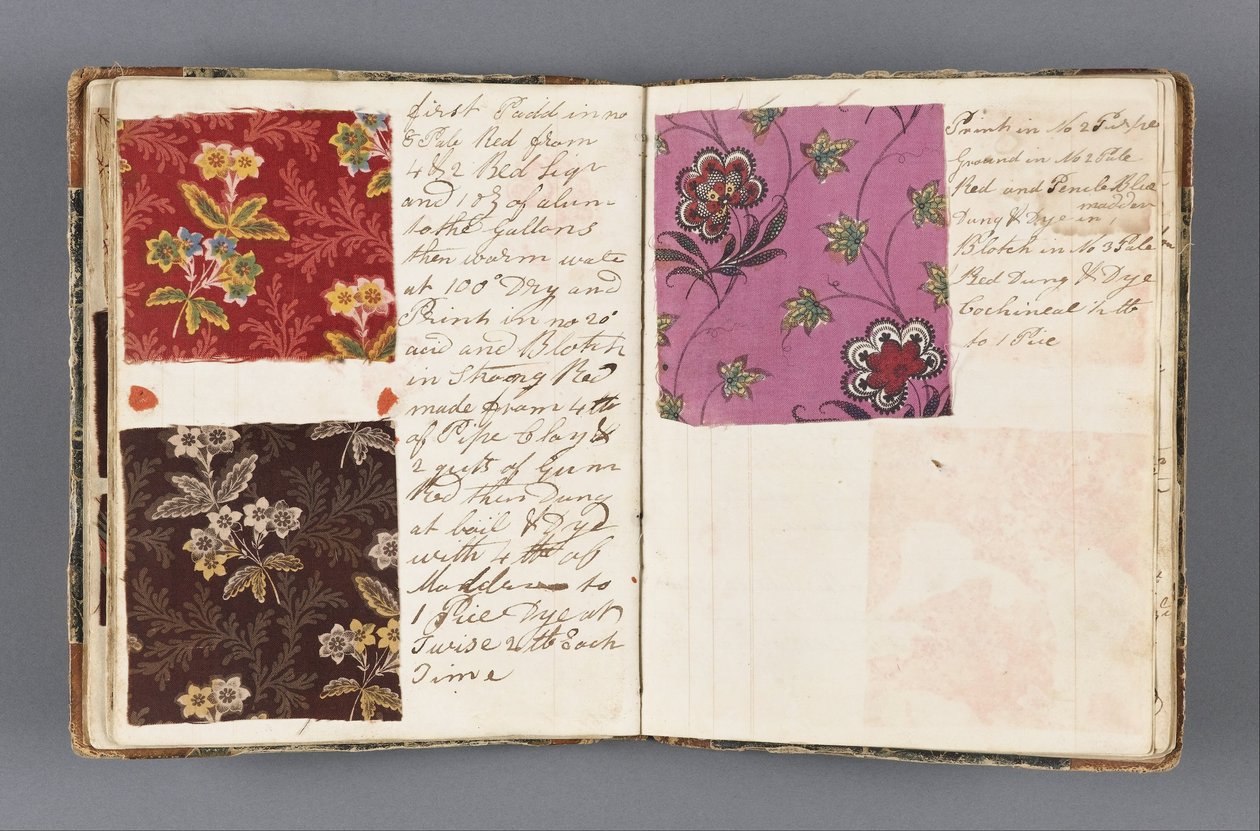 first Padd in no
& Pale Red from
4 of 2 Red Liqr
and 10 ℥ of alum
to the Gallons
then warm wate
at 100° Dry and
Print in no 20°
acid and Blotch
in Strong Red
made from 4 tb
of Pipe Clay &
2 quts of Gum
Red then Dung
at boil & Dye
with 4 tb of
Madder to
1 Pice Dye at
Twise 2 tb Each
Time
Print in No 2 Purple
Ground in No 2 Pale
Red and Pencile Blue
madder
Dung & Dye in
Blotch in No 3 Pale
Red Dung & Dye
Cochineal ½ tb
to 1 Pice